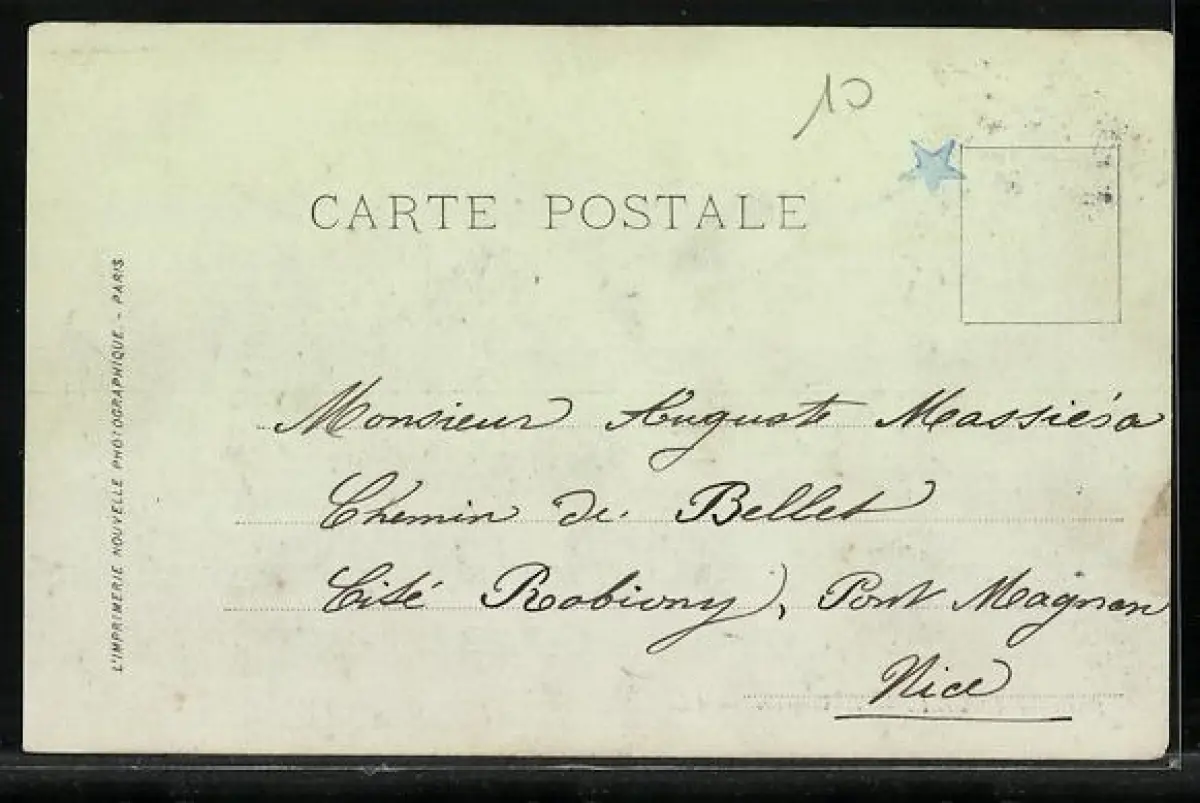 10
CARTE POSTALE
L'IMPRIMERIE NOUVELLE PHOTOGRAPHIQUE. - PARIS
Monsieur Auguste Massiéra
Chemin de Bellet
Cité Robiony, Pont Magnan
Nice